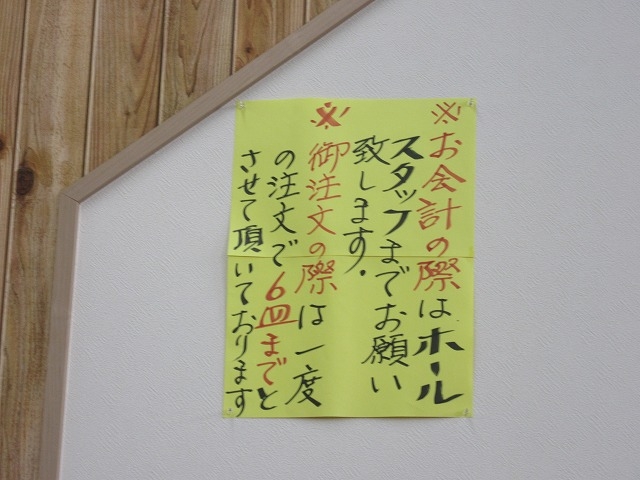 ※お会計の際はホール
スタッフまでお願い
致します.
※御注文の際は一度
の注文で6皿までと
させて頂いております